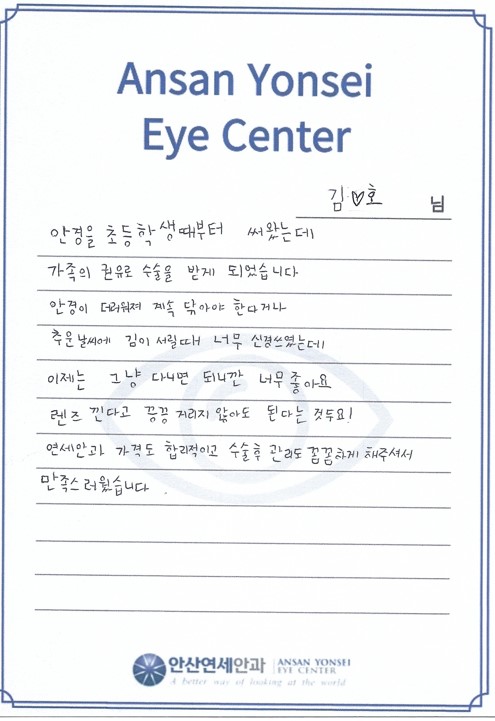 Ansan Yonsei
Eye Center
김♥호 님
안경을 초등학생때부터 써왔는데
가족의 권유로 수술을 받게 되었습니다
안경이 더러워져 계속 닦아야 한다거나
추운날씨에 김이 서릴때 너무 신경쓰였는데
이제는 그냥 다니면 되니깐 너무좋아요
렌즈 낀다고 끙끙 거리지 않아도 된다는 것두요!
연세안과 가격도 합리적이고 수술후 관리도 꼼꼼하게 해주셔서
만족스러웠습니다
안산연세안과 ANSAN YONSEI
EYE CENTER
A better way of looking at the world